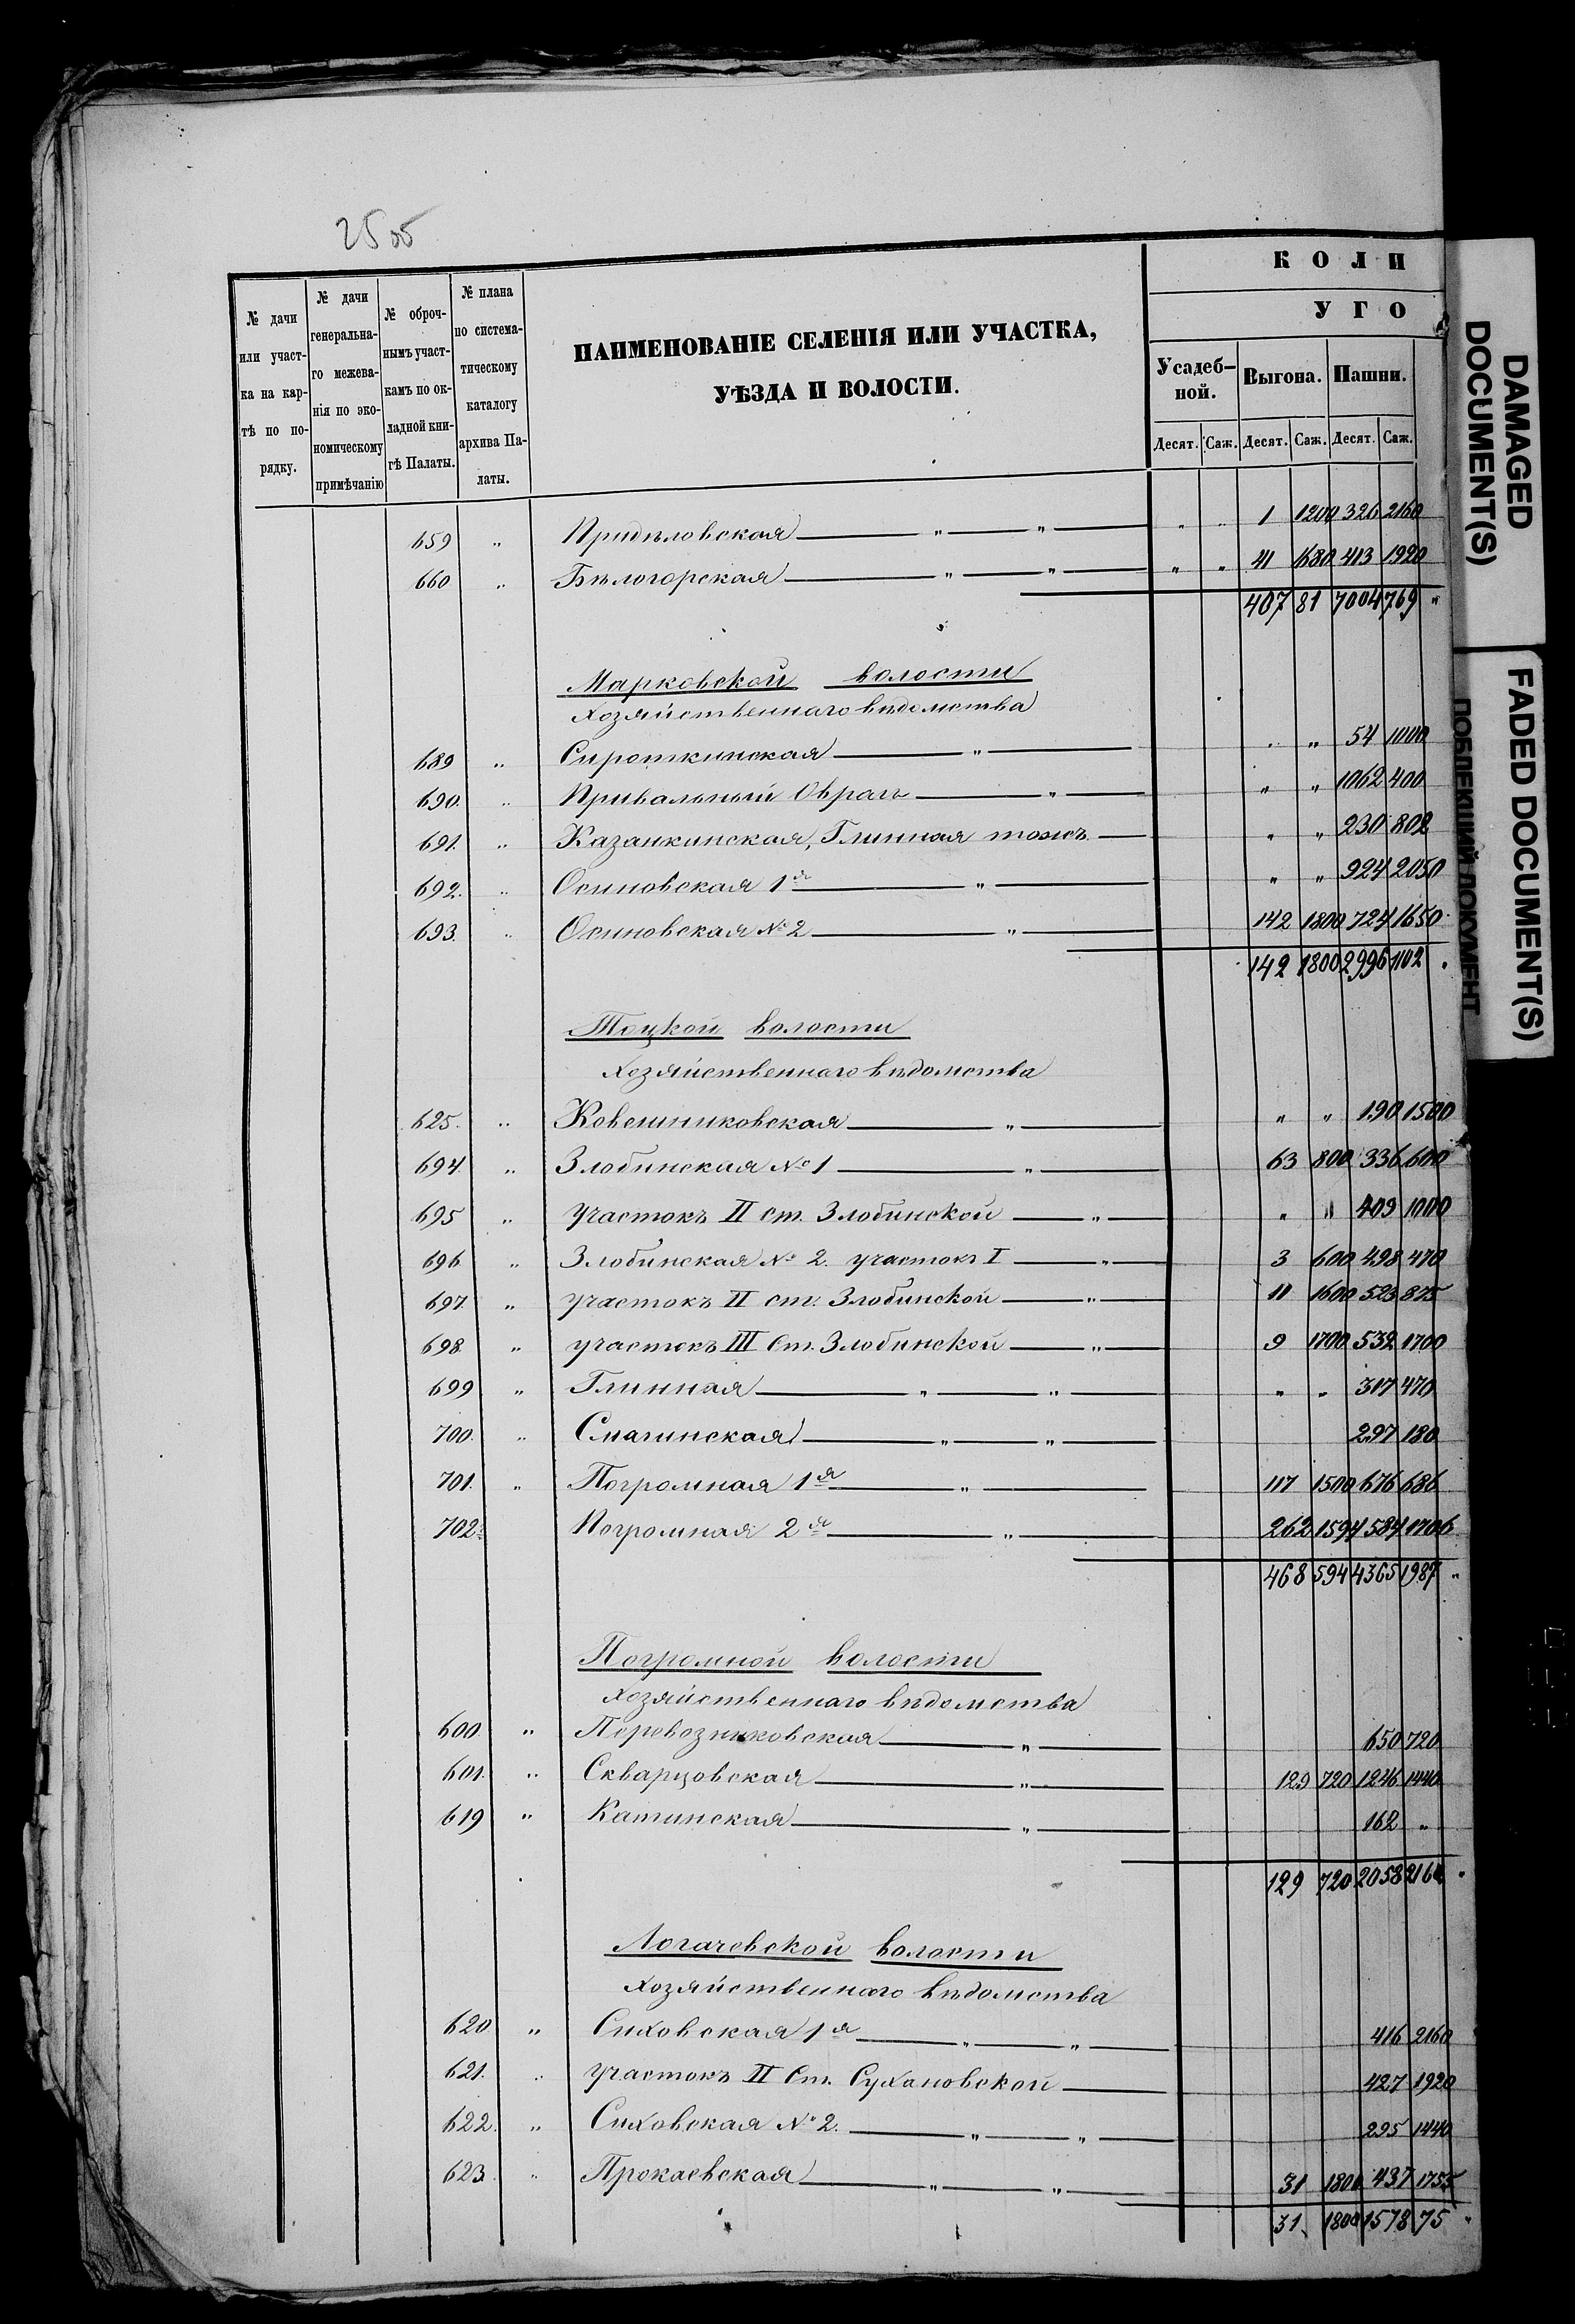 25 об
№ дачи или участка на картѣ по порядку.
№ дачи генеральнаго межеванія по экономическому примѣчанію
№ оброчнымъ участкамъ по окладной книгѣ Палаты.
№ плана по систематическому каталогу архива Палаты.
НАИМЕНОВАНІЕ СЕЛЕНІЯ ИЛИ УЧАСТКА,
УѢЗДА И ВОЛОСТИ.
КОЛИ
УГО
Усадебной. Выгона. Пашни.
Десят. Саж. Десят. Саж. Десят. Саж.
659 „ Придѣловская „ „ „ „ 1 1200 326 2160
660 „ Бѣлогорская „ „ „ „ 41 1680 413 1920
407 81 7004 769 „
Марковской волости
Хозяйственнаго вѣдомства
689 „ Сироткинская „ „ „ 54 1000
690. „ Привальный Оврагъ „ „ „ 1062 400
691. „ Казанкинская, Глинная тожъ „ „ 230 802
692. „ Осиновская 1я „ „ „ 924 2050
693. „ Осиновская №2 „ 142 1800 724 1650
142 1800 2996 1102
Тоцкой волости
Хозяйственнаго вѣдомства
625. „ Ковешниковская „ „ „ 190 1500
694. „ Злобинская №1 „ 63 800 336 600
695 „ участокъ II ст. Злобинской „ „ „ 409 1000
696. „ Злобинская № 2. участокъ I „ 3 600 498 470
697. „ участокъ II ст. Злобинской „ 11 1600 523 875
698. „ участокъ III Ст. Злобинской „ 9 1700 532 1700
699 „ Глинная „ „ „ „ 317 470
700. „ Смагинская „ „ 297 180
701. „ Погромная 1я „ 117 1500 676 686
702. Погромная 2я „ 262 1594 584 1706
468 594 4365 1987 „
Погромной волости
Хозяйственнаго вѣдомства
600. „ Перевозниковская „ 650 720
601. „ Скварцовская „ 129 720 1246 1440
619 „ Катинская „ 162 „
129 720 2058 2160
Логачевской волости
Хозяйственнаго вѣдомства
620 „ Сиховская 1я „ „ 416 2160
621. „ участокъ II Ст. Сухановской 427 1920
622. „ Сиховская № 2. „ „ 295 1440
623. „ Прокаевская „ „ 31 1800 437 1755
31 1800 1578 75 „
DAMAGED
DOCUMENT(S)
FADED DOCUMENT(S)
ПОБЛЕКШИЙ ДОКУМЕНТ